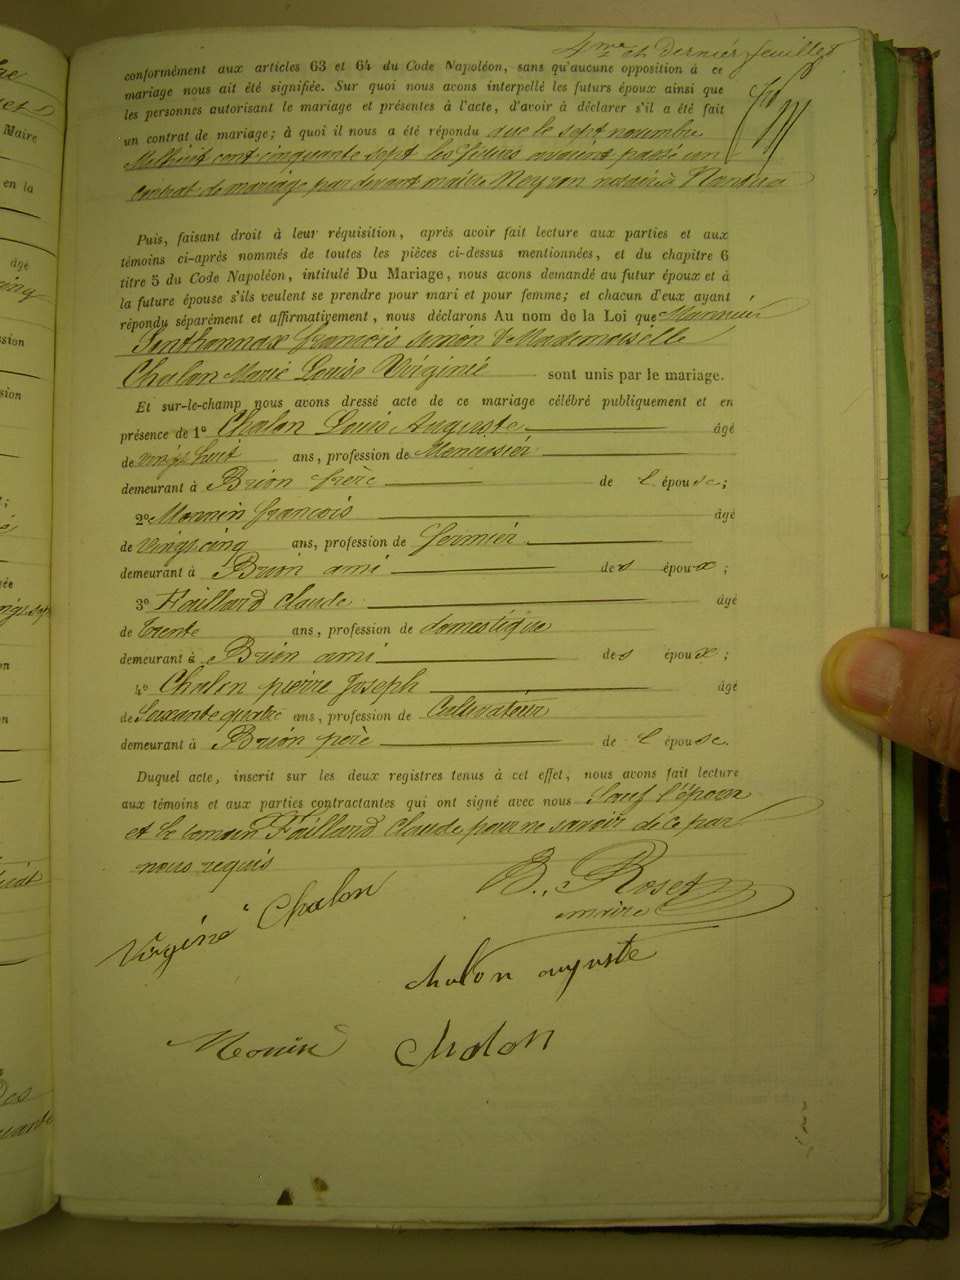 4me et Dernier feuillet
conformément aux articles 63 et 64 du Code Napoléon, sans qu'aucune opposition à ce
mariage nous ait été signifiée. Sur quoi nous avons interpellé les futurs époux ainsi que
les personnes autorisant le mariage et présentes à l'acte, d'avoir à déclarer s'il a été fait
un contrat de mariage; à quoi il nous a été répondu que le sept novembre
Milhuit cent cinquante sept les futurs avaient passé un
Contrat de mariage par devant maître Meyron notaire à Nantua
Puis, faisant droit à leur réquisition, après avoir fait lecture aux parties et aux
témoins ci-après nommés de toutes les pièces ci-dessus mentionnées, et du chapitre 6
titre 5 du Code Napoléon, intitulé Du Mariage, nous avons demandé au futur époux et à
la future épouse s'ils veulent se prendre pour mari et pour femme; et chacun d'eux ayant
répondu séparément et affirmativement, nous déclarons Au nom de la Loi que
Sonthonnax françois & Mademoiselle
Chalon Marie Louise Virginie sont unis par le mariage.
Et sur-le-champ nous avons dressé acte de ce mariage célébré publiquement et en
présence de 1o Chalon Louis Auguste âgé
de vingt huit ans, profession de Menuisier
demeurant à Brion frère de l'épouse;
2o françois âgé
de vingt cinq ans, profession de fermier
demeurant à Brion ami des époux;
3o Faillard Claude âgé
de trente ans, profession de domestique
demeurant à Brion ami des époux;
4o Chalon pierre Joseph âgé
de Soixante quatre ans, profession de Cultivateur
demeurant à Brion père de l'épouse.
Duquel acte, inscrit sur les deux registres tenus à cet effet, nous avons fait lecture
aux témoins et aux parties contractantes qui ont signé avec nous Sauf l'époux
et le temoin Faillard Claude pour ne savoir de ce par
nous requis
Virginie Chalon
B. Roset
maire
chalon auguste
chalon